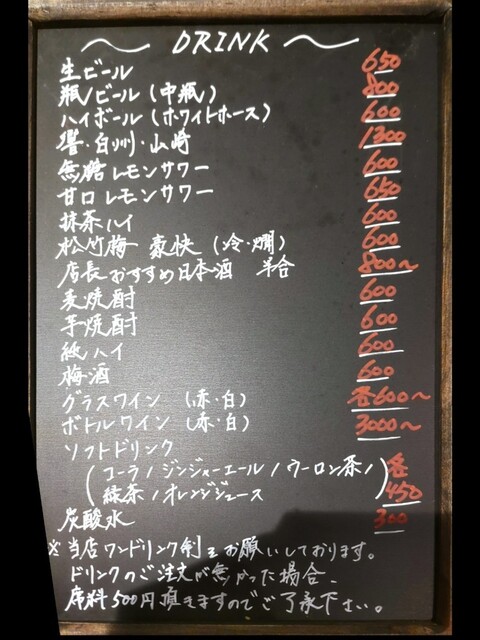 〜 DRINK 〜
生ビール 650
瓶ビール(中瓶) 800
ハイボール(ホワイトホース) 600
響・白州・山崎 1300
無糖レモンサワー 600
甘口レモンサワー 650
抹茶ハイ 600
松竹梅 豪快(冷・燗) 600
店長おすすめ日本酒 半合 800〜
麦焼酎 600
芋焼酎 600
紙ハイ 600
梅酒 600
グラスワイン (赤・白) 各600〜
ボトルワイン (赤・白) 3000〜
ソフトドリンク
(コーラ/ジンジャーエール/ウーロン茶/ 各
緑茶/オレンジジュース) 450
炭酸水 300
※当店ワンドリンク制をお願いしております。
ドリンクのご注文が無かった場合、
席料500円頂きますのでご了承下さい。